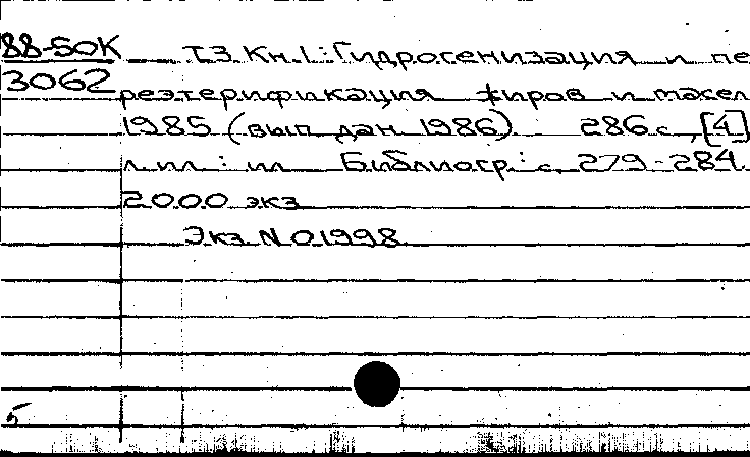 88-50К Т.3. Кн.1.: Гидрогенизация и пе
3062 реэтерификация жиров и масел
1985 (вып. дан. 1986). 286 с., [4]
л. ил. : ил. Библиогр.: с. 279-284.
2000 экз.
Экз. N 01998
5